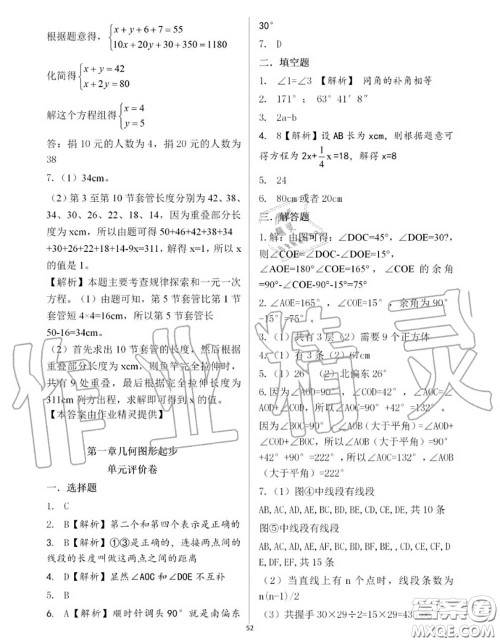 根据题意得,{x+y+6+7=55
10x+20y+30+350=1180
化简得{x+y=42
x+2y=80
解这个方程组得{x=4
y=5
答: 捐 10 元的人数为 4, 捐 20 元的人数为
38
7. (1) 34cm.
(2) 第 3 至第 10 节套管长度分别为 42、38、
34、30、26、22、18、14, 因为重叠部分长
度为 xcm, 所以由题可得 50+46+42+38+34
+30+26+22+18+14-9x=311, 解得 x=1, 所以
x 的值是 1.
【解析】本题主要考查规律探索和一元一次
方程。(1) 由题可知, 第 5 节套管比第 1 节
套管短 4×4=16cm, 所以第 5 节套管长
50-16=34cm.
(2) 首先求出 10 节套管的长度, 然后根据
重叠部分长度为 xcm, 则鱼竿完全拉伸时,
共有 9 处重叠, 最后根据完全拉伸长度为
311cm 列方出程, 求解即可得到 x 的值。
【本答案由作业精灵提供】
第一章几何图形起步
单元评价卷
一. 选择题
1. C
2. B【解析】第二个和第四个表示是正确的
3. B【解析】①③是正确的. 连接两点间的
线段的长度叫做这两点之间的距离
4. D
5. B【解析】显然∠AOC 和∠DOE 不互补
6. A【解析】顺时针调头 90° 就是南偏东
30°
7. D
二. 填空题
1. ∠1=∠3 【解析】 同角的补角相等
2. 171°; 63°41′8″
3. 2a-b
4. 8【解析】设 AB 长为 xcm, 则根据题意可
得方程为 2x+1/4x=18, 解得 x=8
5. 24
6. 80cm 或者 20cm
三. 解答题
1.解: 由图可得: ∠DOC=45°, ∠DOE=30?,
则∠COE=∠DOC-∠DOE=15°,
∠AOE=180°∠COE=165°, ∠COE 的余角
=90°-∠COE-90°-15°=75°
2.∠AOE=165°, ∠COE=15°, 余角为 90°
-15°=75°.
3. (1) 共有 3 层 (2) 需要 9 个正方体
4. (1) 有 3 条 (2) 67cm
5. (1) 26° (2) 北偏东 26°
6.因为∠AOD=90°, ∠COD=42°, ∠AOC=∠
AOD+∠COD, 所以∠AOC=90°+42°=132°.
因为∠AOD=90°, ∠COD=42°, ∠BOC=90°
∠AOB (大于平角) =∠AOD+∠COD+
∠BOC, 所以∠AOB (大于平角) =90°
+42°+90°=222°, 因为∠AOC=132°, ∠AOB
(大于平角) =222°
7. (1) 图④中线段有线段
AB, AC, AD, AE, BC, BD, BE, CD, CE, DE, 共 10 条
图⑤中线段有线段
AB, AC, AD, AE, AF, BC, BD, BE, BF, CD, CE, CF, D
E, DF, EF, 共 15 条
(2) 当直线上有 n 个点时, 线段条数为
n(n-1)/2
52
作业精灵
答案圈
MXQE.COM